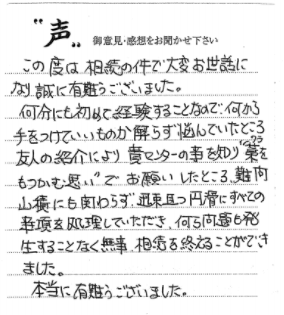 "声" 御意見・感想をお聞かせ下さい
この度は相続の件で大変お世話に
なり誠に有難うございました。
何分にも初めて経験することなので、何から
手をつけていいものか解らず悩んでいたところ
友人の紹介により貴センターの事を知り"藁を
もつかむ思い"でお願いしたところ、難問
山積にも関わらず迅速且つ円滑にすべての
事項を処理していただき、何ら問題も発
生することなく無事、相続を終えることができ
ました。
本当に有難うございました。